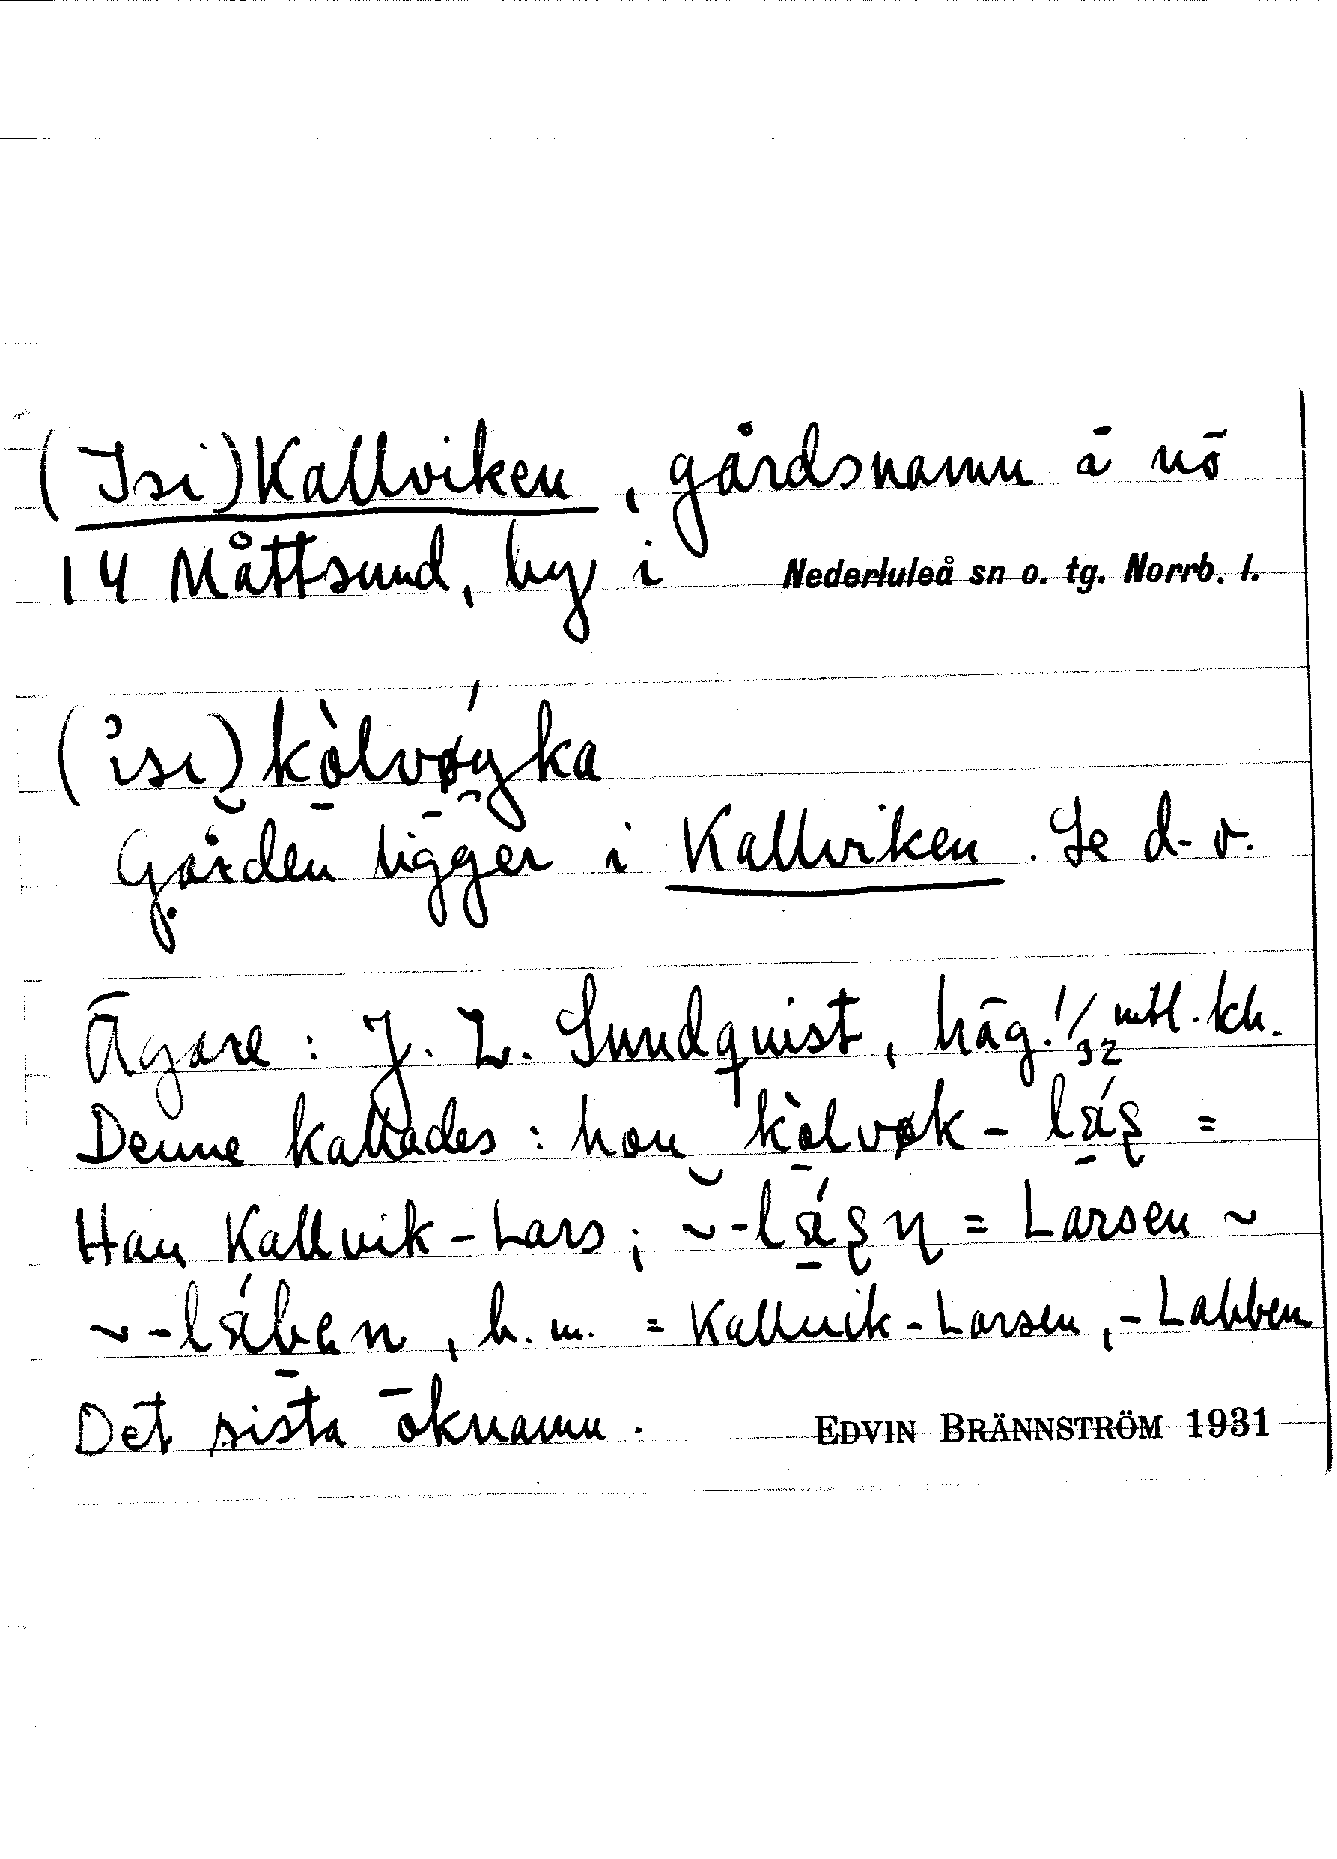 (Isi)Kallviken, gårdsnamn å nō
14 Måttsund, by i Nederluleå sn o. tg. Norrb. l.
(ısı) kòlvøýka
Gården ligger i Kallviken. Se d. o.
Ägare: J. L. Sundquist, häg. 1/32 mtl. kh.
Denne kallades: hon kòlvøk-
Han Kallvik-Lars; ~- = Larsen ~
~-, b. m. = Kallvik-Larsen, -Labben
Det sista öknamn.
EDVIN BRÄNNSTRÖM 1931